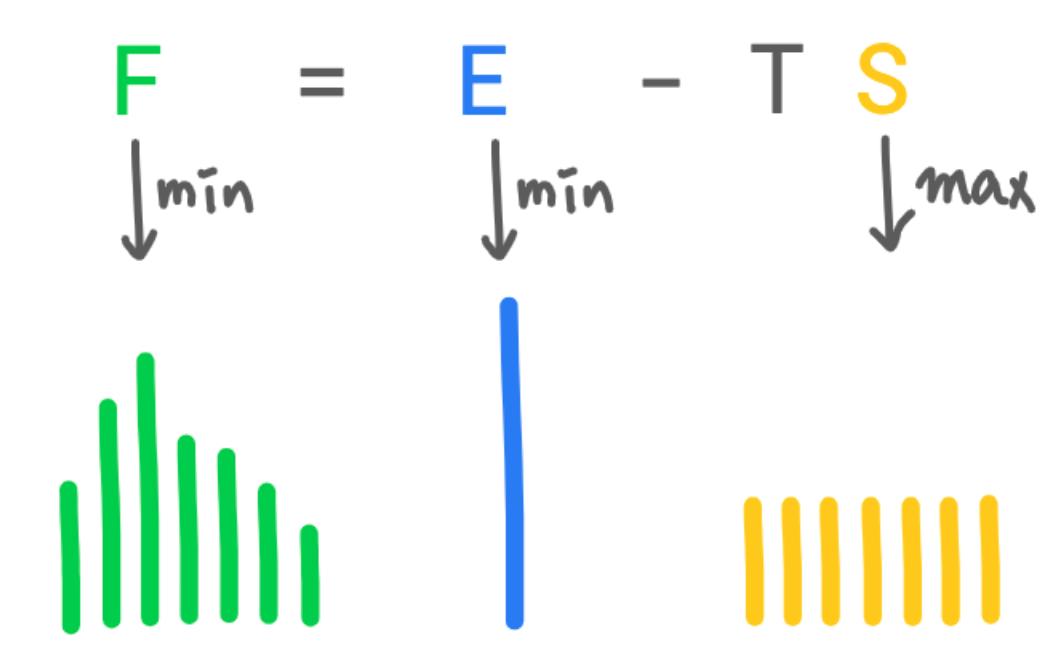 F = E - T S
min min max